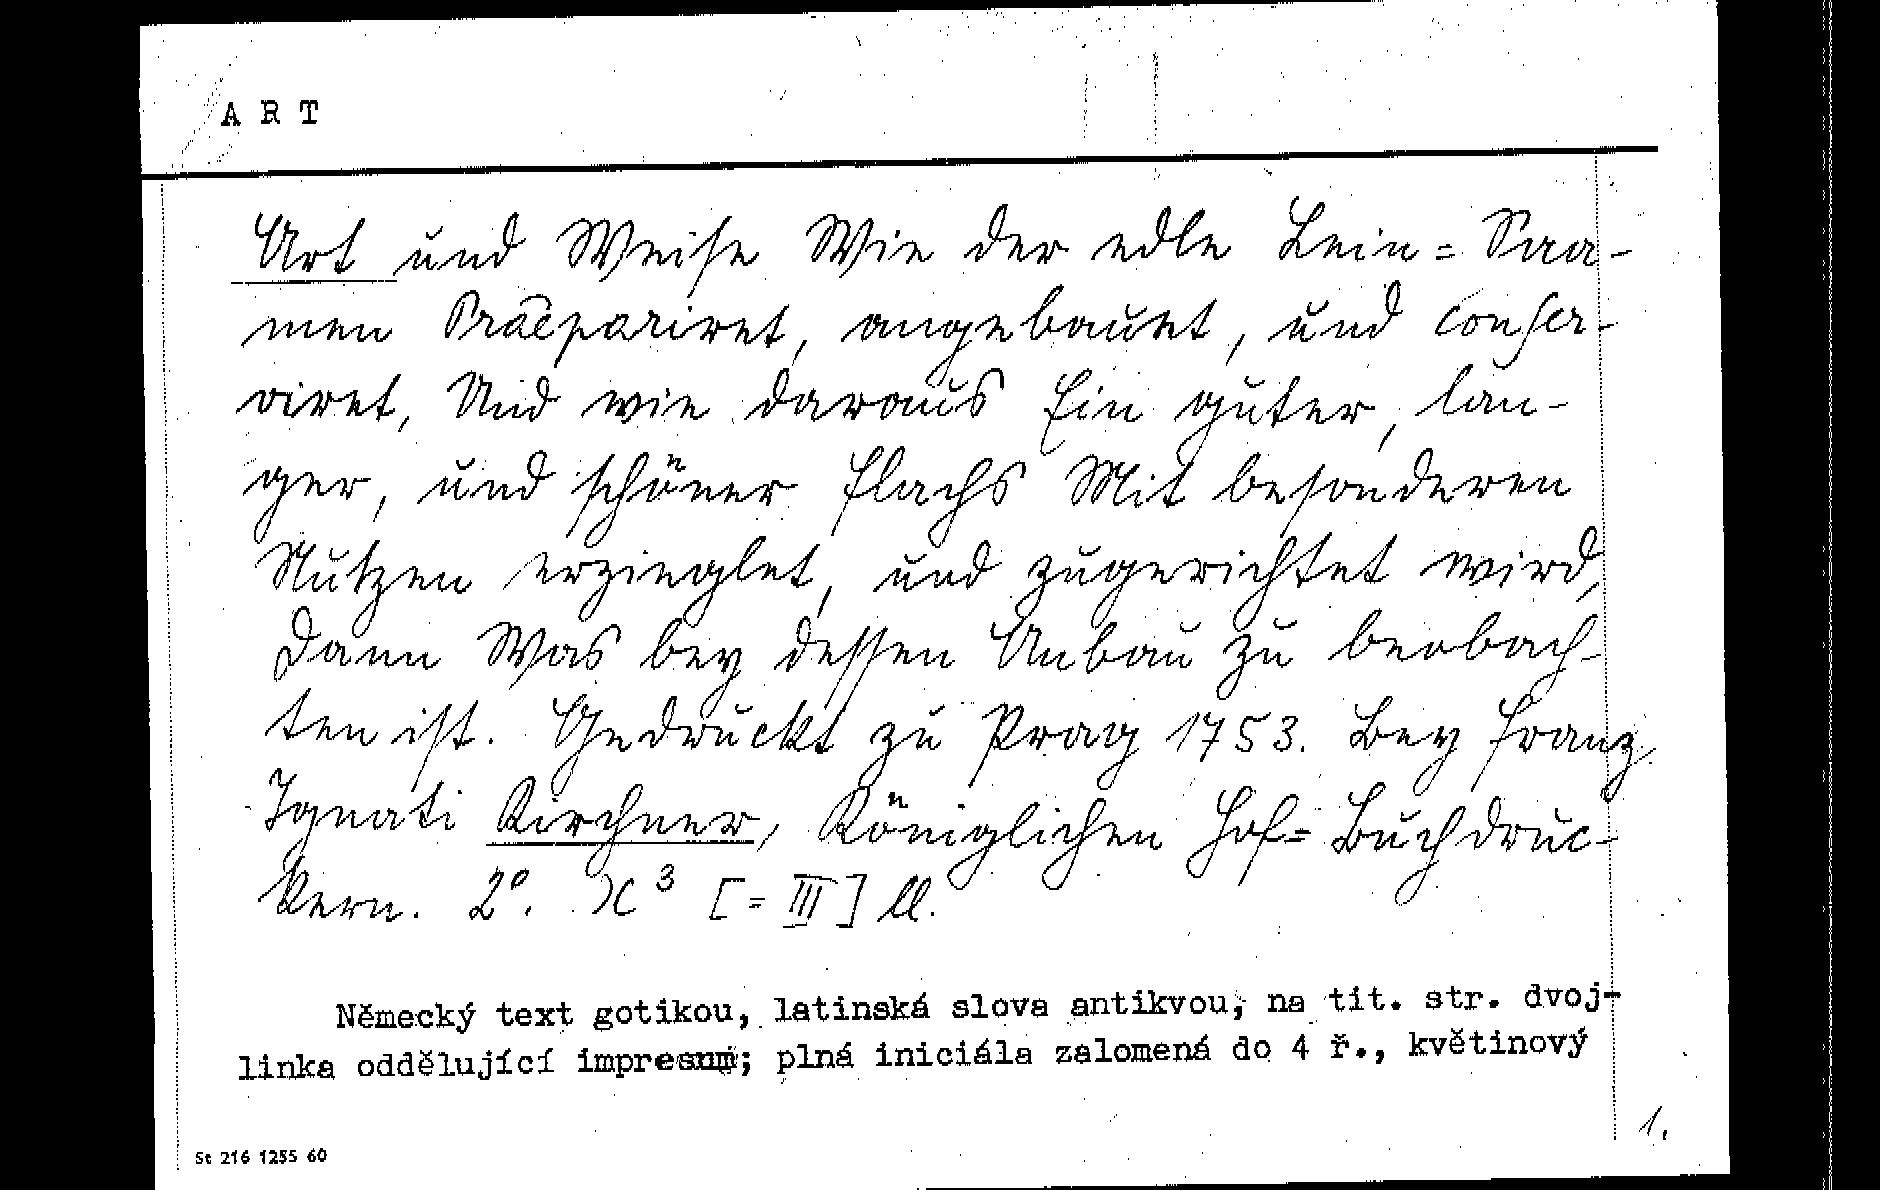 A R T
Art und Weise Wie der edle Lein= Saa-
men Praepariret, angebauet, und conser-
viret, Und wie daraus Ein guter, lan-
ger, und schöner Flachs Mit besonderen
Nutzen erzieglet, und zugerichtet wird,
Dann Was bey dessen Anbau zu beobach-
ten ist. Gedruckt zu Prag 1753. Bey Franz
Ignati Kirchner, Königlichen Hof= Buchdruc-
kern. 2°. )(³ [= III] ll.
Německý text gotikou, latinská slova antikvou, na tit. str. dvoj-
linka oddělující impresum; plná iniciála zalomená do 4 ř., květinový
1.
St 216 1255 60